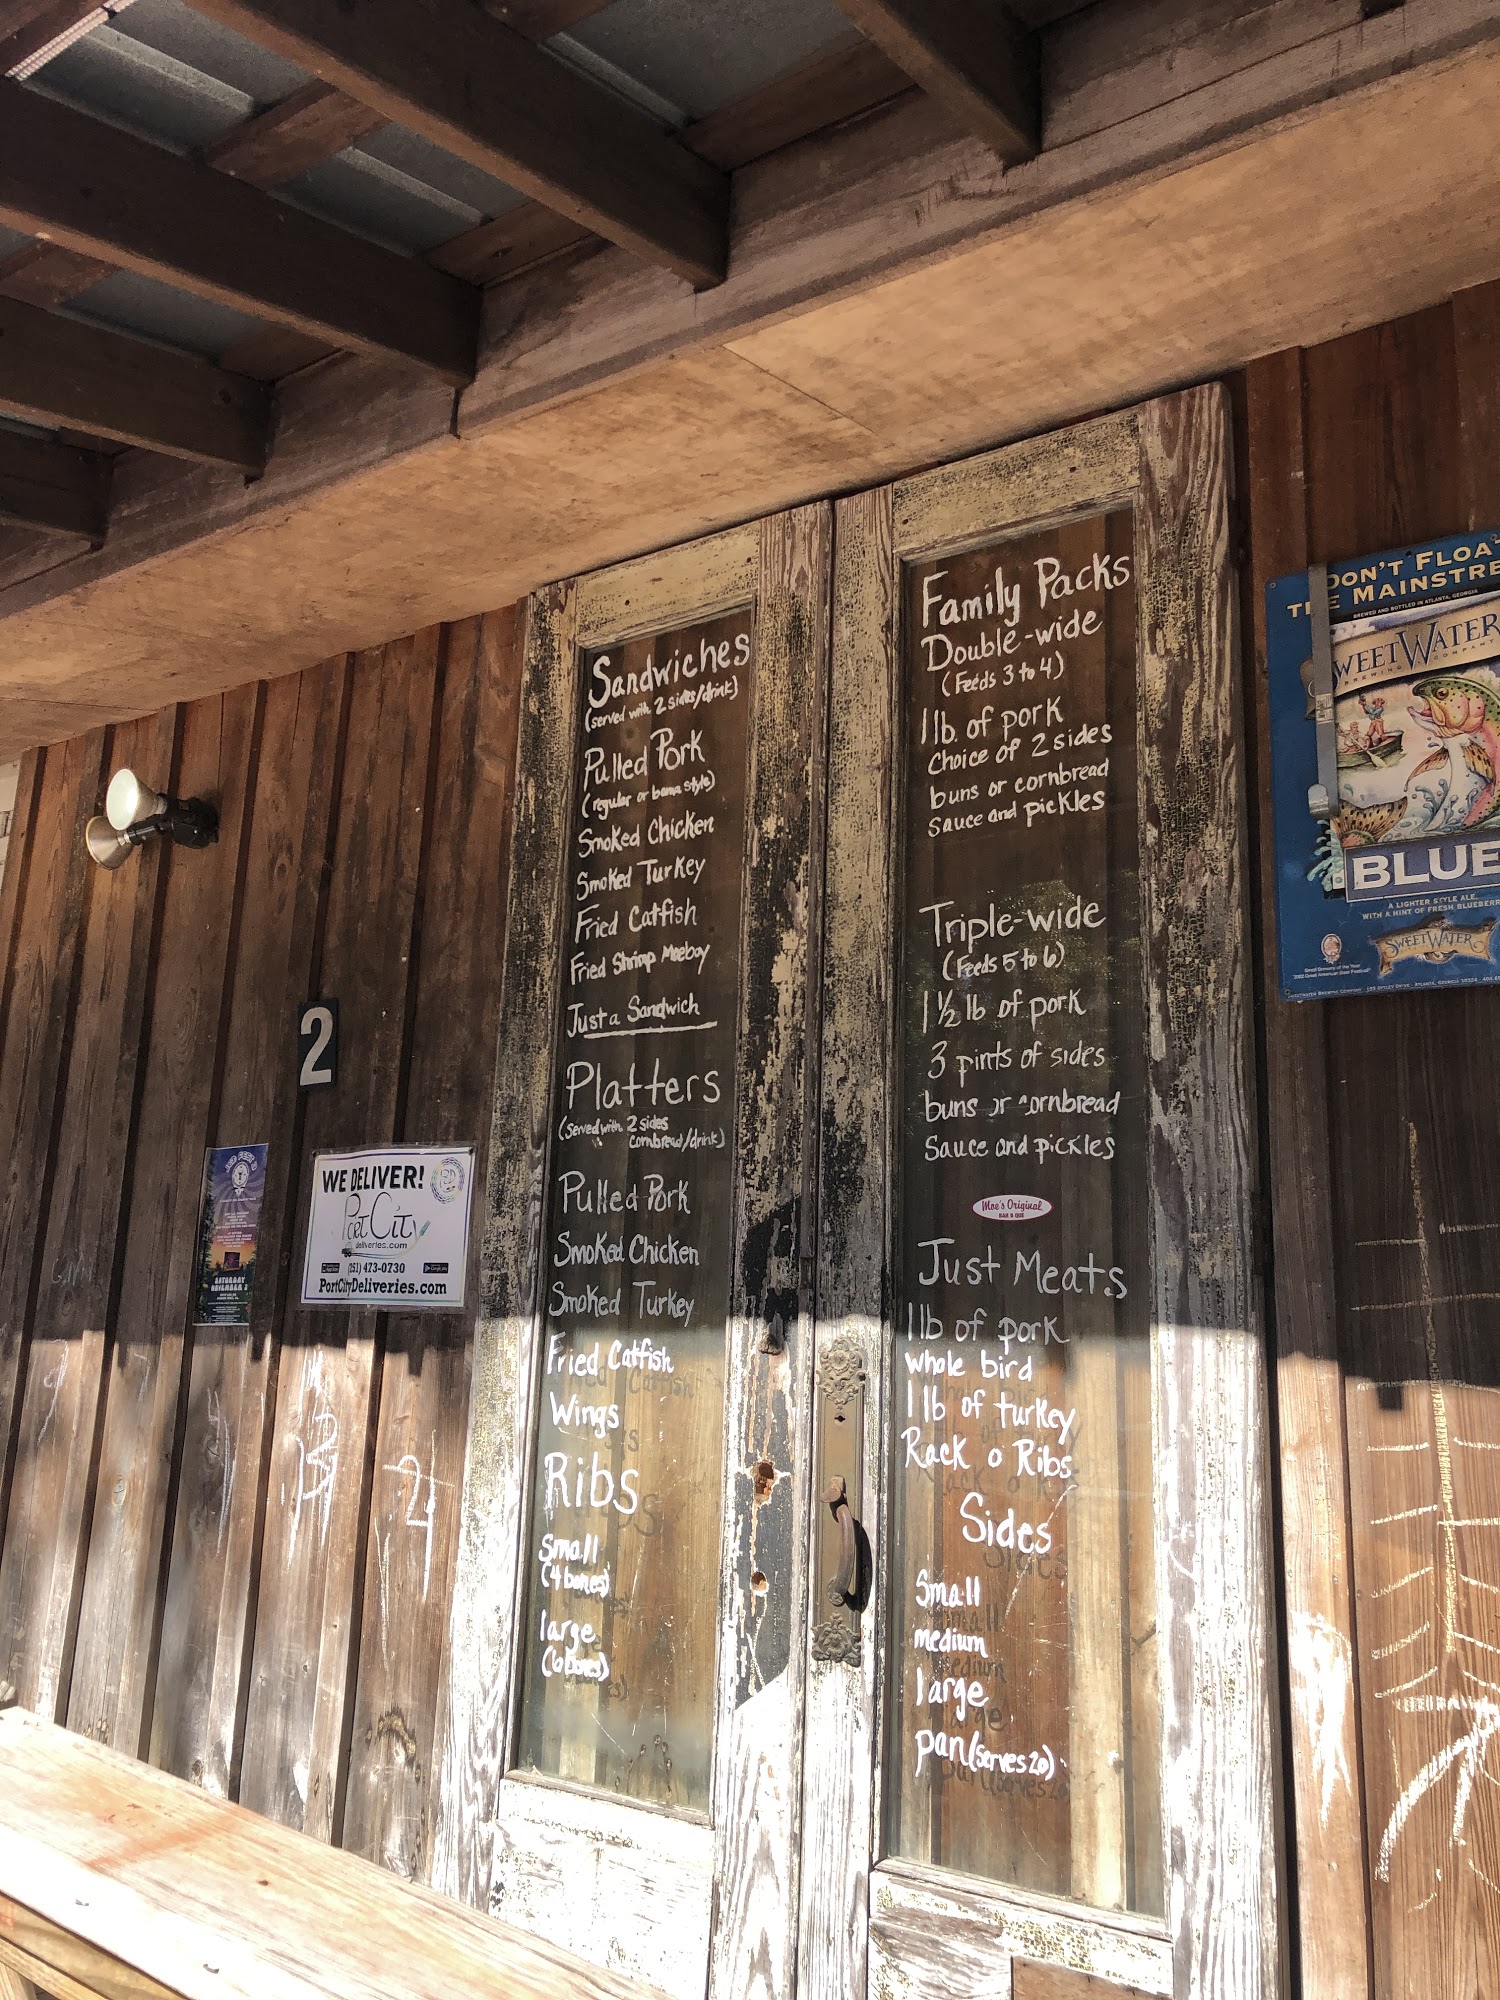 Sandwiches
(served with 2 sides/drink)
Pulled Pork
(regular or bama style)
Smoked Chicken
Smoked Turkey
Fried Catfish
Fried Shrimp Moeboy
Just a Sandwich
Platters
(served with 2 sides
cornbread/drink)
Pulled Pork
Smoked Chicken
Smoked Turkey
Fried Catfish
Wings
Ribs
small
(4 bones)
large
(6 bones)
Family Packs
Double-wide
(Feeds 3 to 4)
1 lb. of pork
Choice of 2 sides
buns or cornbread
sauce and pickles
Triple-wide
(Feeds 5 to 6)
1 1/2 lb of pork
3 pints of sides
buns or cornbread
sauce and pickles
Moe's Original
BAR B QUE
Just Meats
1 lb of pork
whole bird
1 lb of turkey
Rack o Ribs
Sides
Small
medium
large
pan (serves 20)
2
WE DELIVER!
Port City
deliveries.com
(251) 473-0730
PortCityDeliveries.com
SATURDAY
NOVEMBER 3
DON'T FLOAT
THE MAINSTRE
BREWED AND BOTTLED IN ATLANTA, GEORGIA
SWEETWATER
BREWING COMPANY
BLUE
A LIGHTER STYLE ALE
WITH A HINT OF FRESH BLUEBERR
SWEETWATER
2